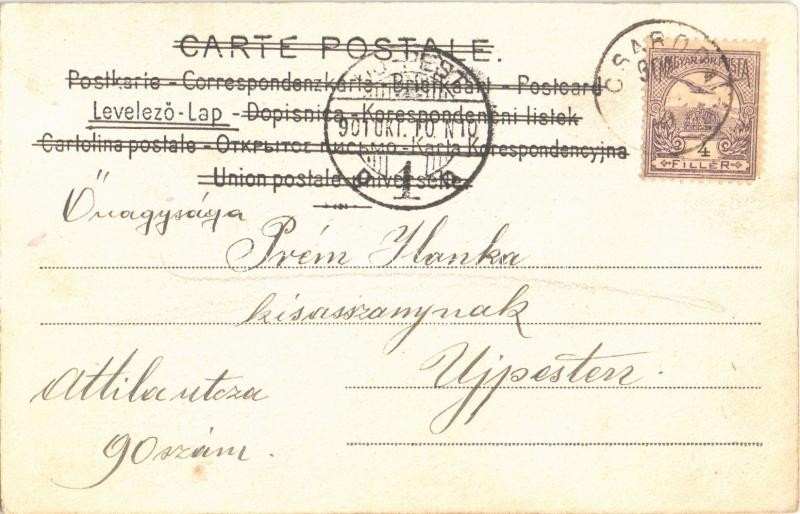 CARTE POSTALE.
Postkarie - Correspondenzkarte - Briefkaart - Postcard
Levelező-Lap - Dopisnica - Korespondenčni listek
Cartolina postale - Открытое письмо - Karta Korespondencyjna
Union postale universelle.
901 OKT. 10. N 10
1
MAGYAR KIR. POSTA
4
FILLÉR
Őnagysága
Prém Ilonka
kisasszonynak
Ujpesten.
Attila utcza
90 szám.